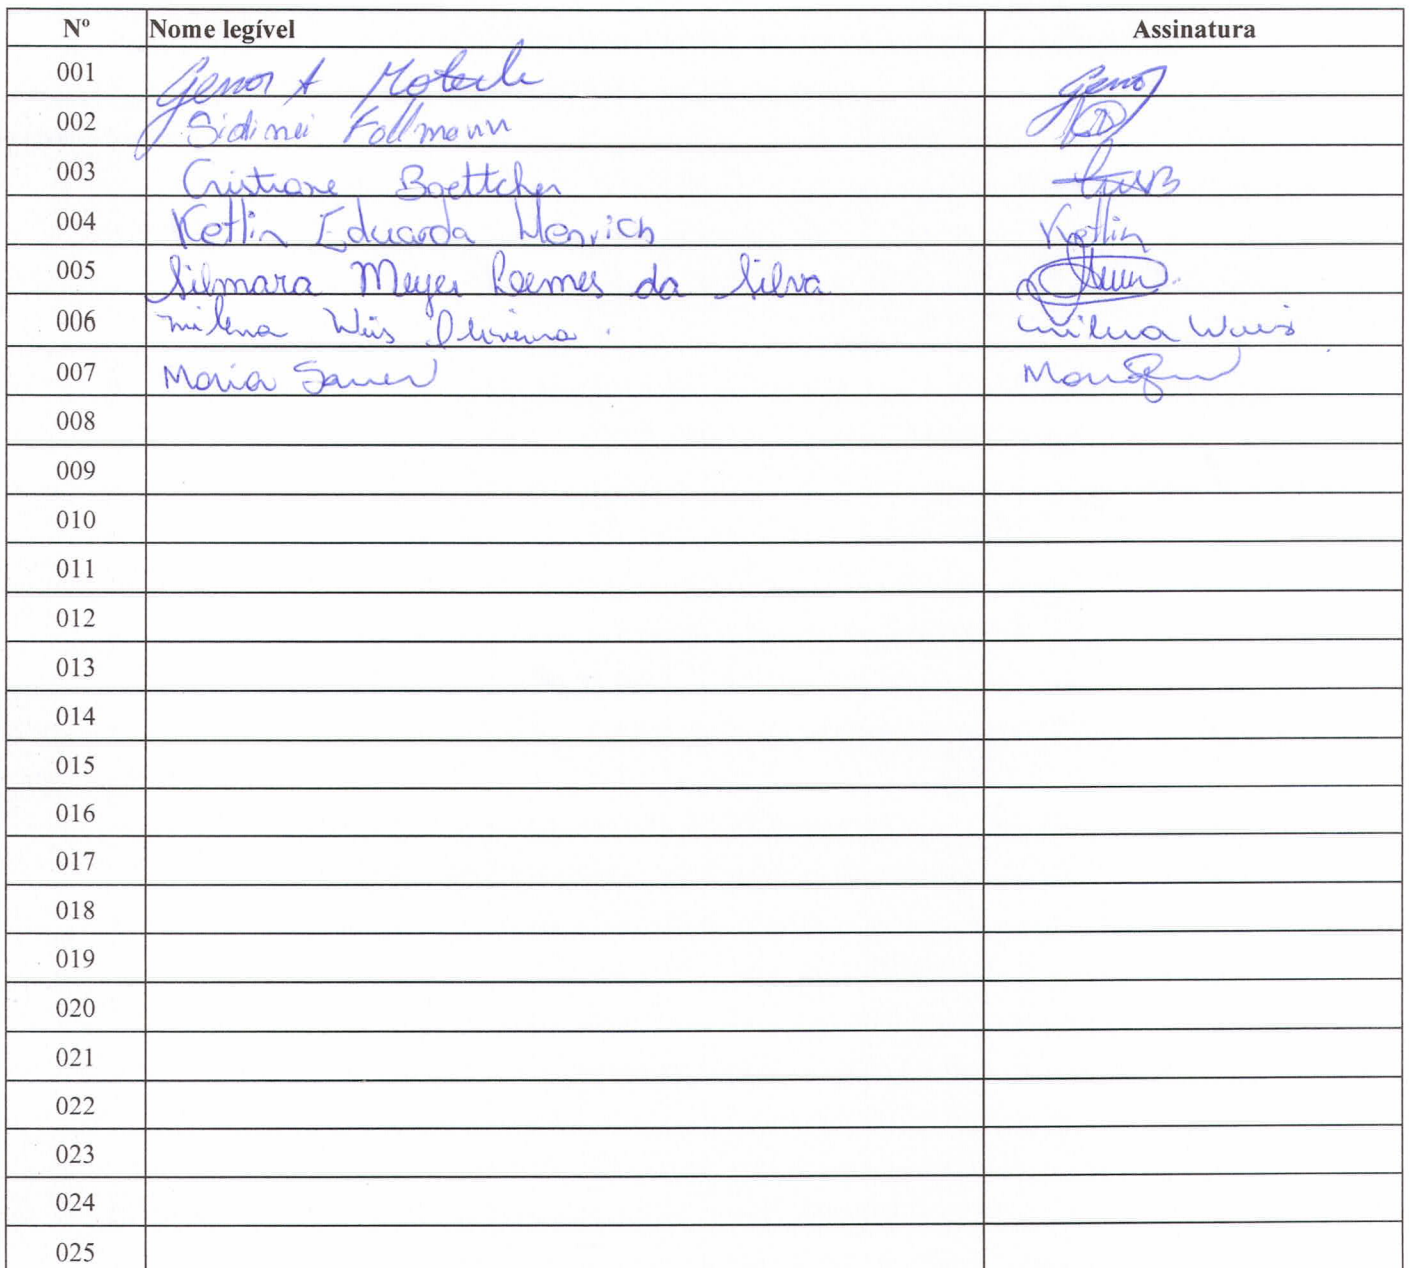 Nº Nome legível Assinatura
001 Genor A Geno
002 Sidinei Follmann
003 Cristiane Boettcher
004 Ketlin Eduarda Henrich Ketlin
005 Silmara Meyer Loemes da Silva
006 Milena Weis Oliveira Milena Weis
007 Maria Sauer Maria
008
009
010
011
012
013
014
015
016
017
018
019
020
021
022
023
024
025